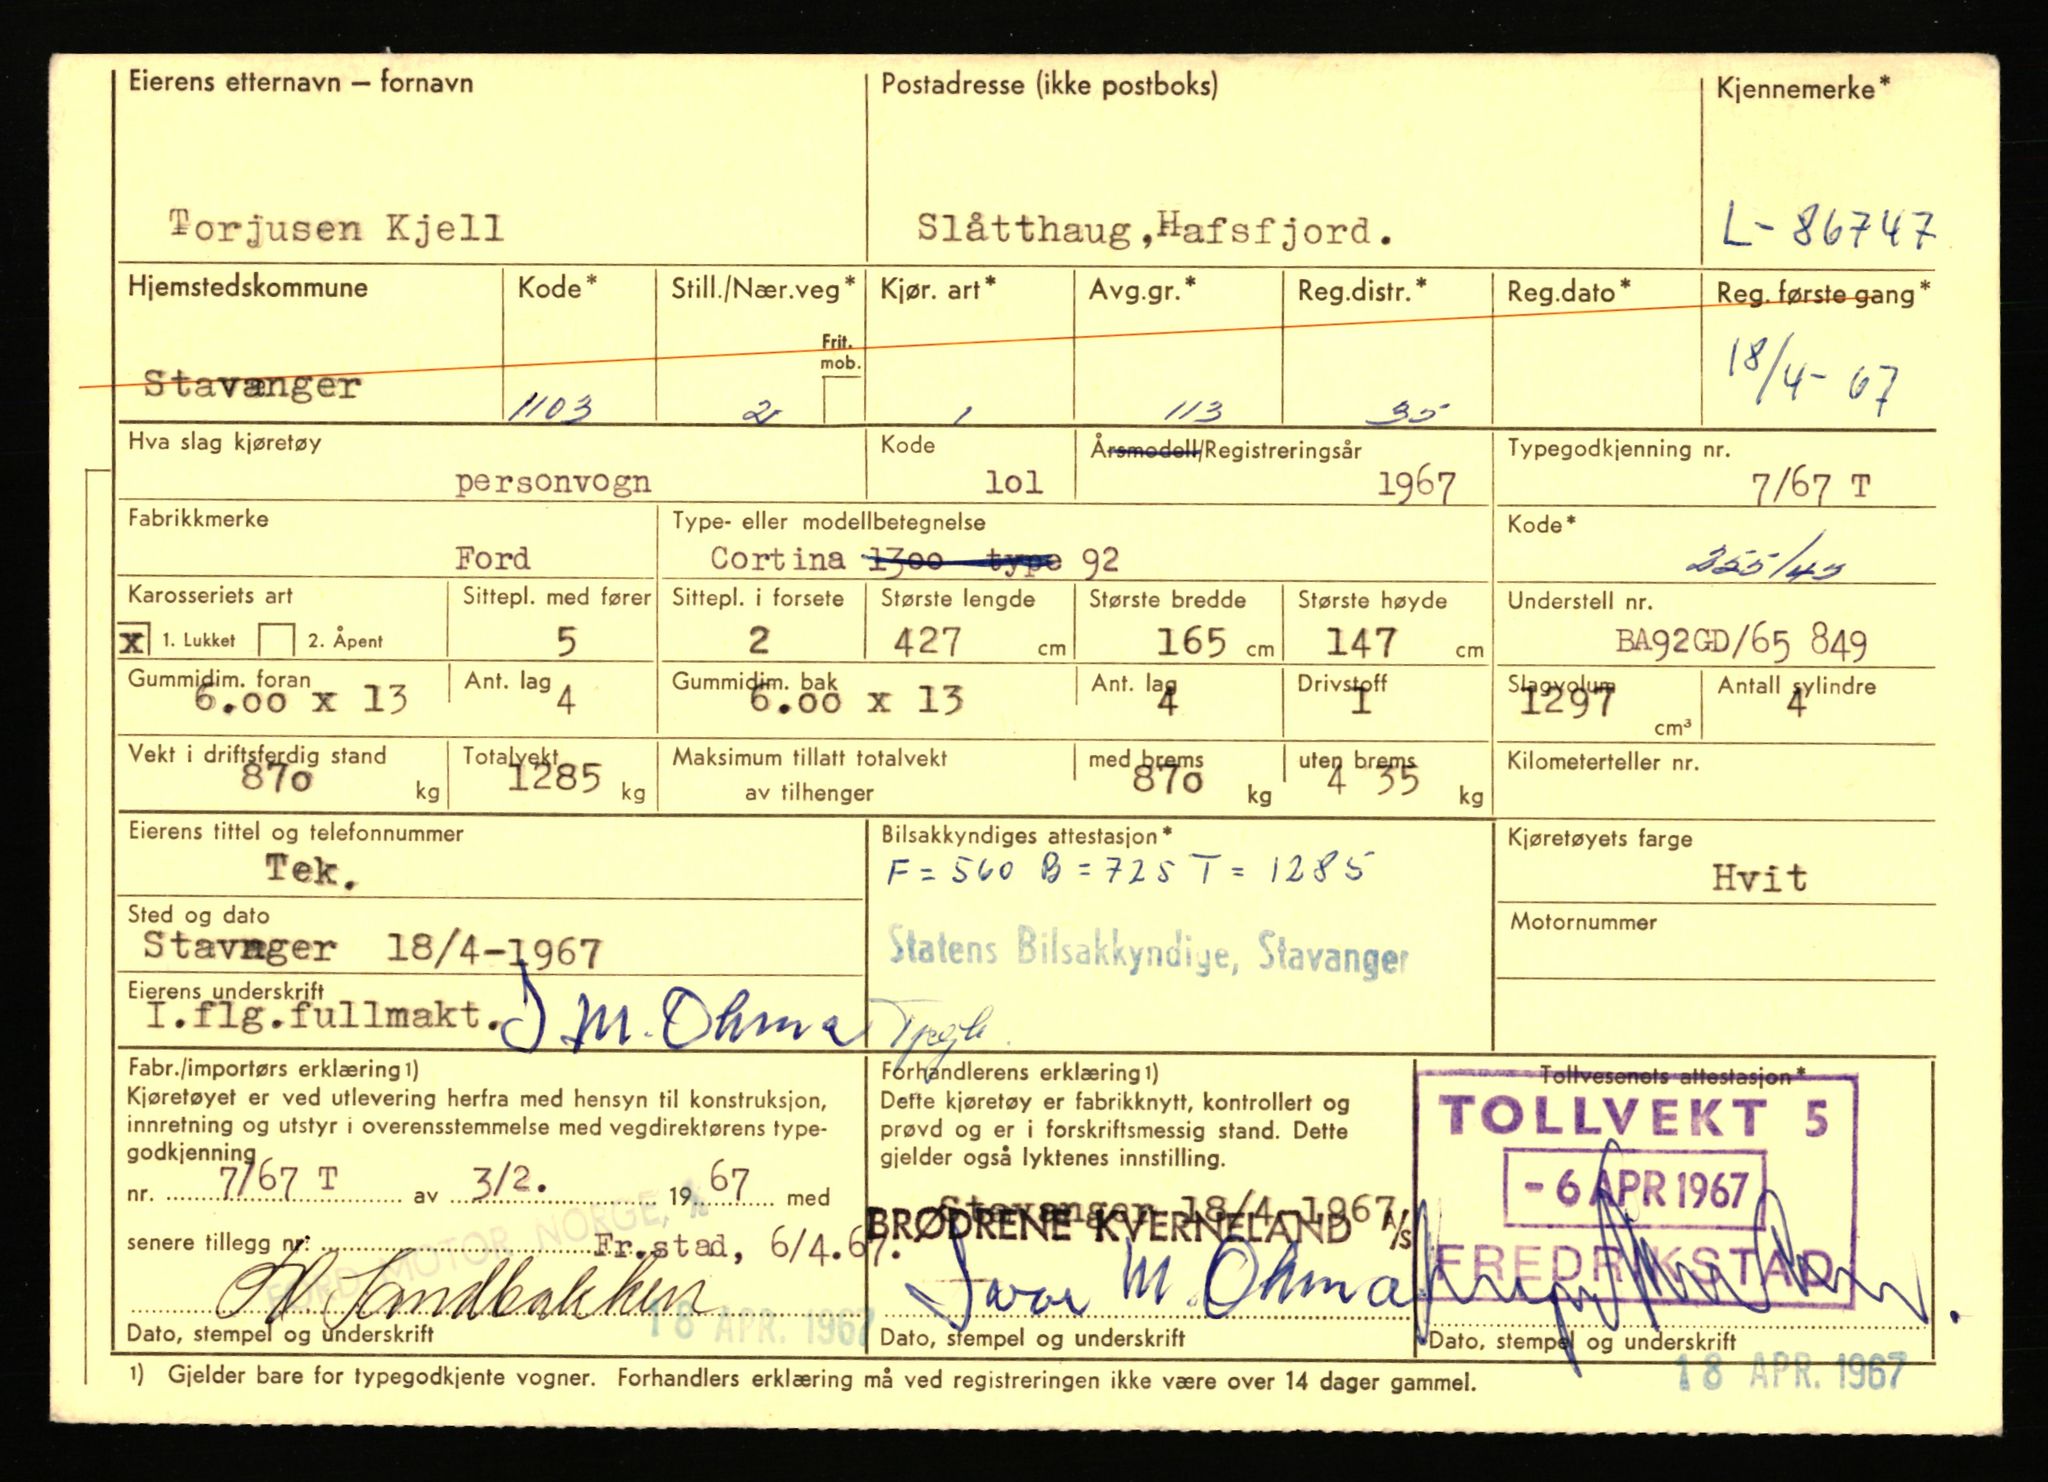 Eierens etternavn — fornavn Postadresse (ikke postboks) Kjennemerke*
Torjusen Kjell Slåtthaug, Hafsfjord. L-86747
Hjemstedskommune Kode* Still./Nær.veg* Kjør. art* Avg.gr.* Reg.distr.* Reg.dato* Reg. første gang*
Frit.
mob.
Stavanger 1103 2 1 113 35 18/4-67
Hva slag kjøretøy Kode Årsmodell/Registreringsår Typegodkjenning nr.
personvogn lol 1967 7/67 T
Fabrikkmerke Type- eller modellbetegnelse Kode*
Ford Cortina 1300 type 92 355/43
Karosseriets art Sittepl. med fører Sittepl. i forsete Største lengde Største bredde Største høyde Understell nr.
x 1. Lukket 2. Åpent 5 2 427 cm 165 cm 147 cm BA92GD/65 849
Gummidim. foran Ant. lag Gummidim. bak Ant. lag Drivstoff Slagvolum Antall sylindre
6.00 x 13 4 6.00 x 13 4 1 1297 cm³ 4
Vekt i driftsferdig stand Totalvekt Maksimum tillatt totalvekt med brems uten brems Kilometerteller nr.
870 kg 1285 kg av tilhenger 870 kg 4 35 kg
Eierens tittel og telefonnummer Bilsakkyndiges attestasjon* Kjøretøyets farge
Tek. F = 560 B = 725 T = 1285 Hvit
Sted og dato Motornummer
Stavnger 18/4-1967 Statens Bilsakkyndige, Stavanger
Eierens underskrift
I.flg.fullmakt. I M. Ohma
Fabr./importørs erklæring 1) Forhandlerens erklæring 1) Tollvesenets attestasjon*
Kjøretøyet er ved utlevering herfra med hensyn til konstruksjon, Dette kjøretøy er fabrikknytt, kontrollert og TOLLVEKT 5
innretning og utstyr i overensstemmelse med vegdirektørens type- prøvd og er i forskriftsmessig stand. Dette
godkjenning gjelder også lyktenes innstilling.
nr. 7/67 T av 3/2. 19 67 med Stavanger 18/4-1967 - 6 APR 1967
FORD MOTOR NORGE,
senere tillegg nr. Fr.stad, 6/4.67. BRØDRENE KVERNELAND A/S FREDRIKSTAD
Sandbakken Ivar M. Ohma
18 APR. 1967
Dato, stempel og underskrift Dato, stempel og underskrift Dato, stempel og underskrift
18 APR. 1967
1) Gjelder bare for typegodkjente vogner. Forhandlers erklæring må ved registreringen ikke være over 14 dager gammel.